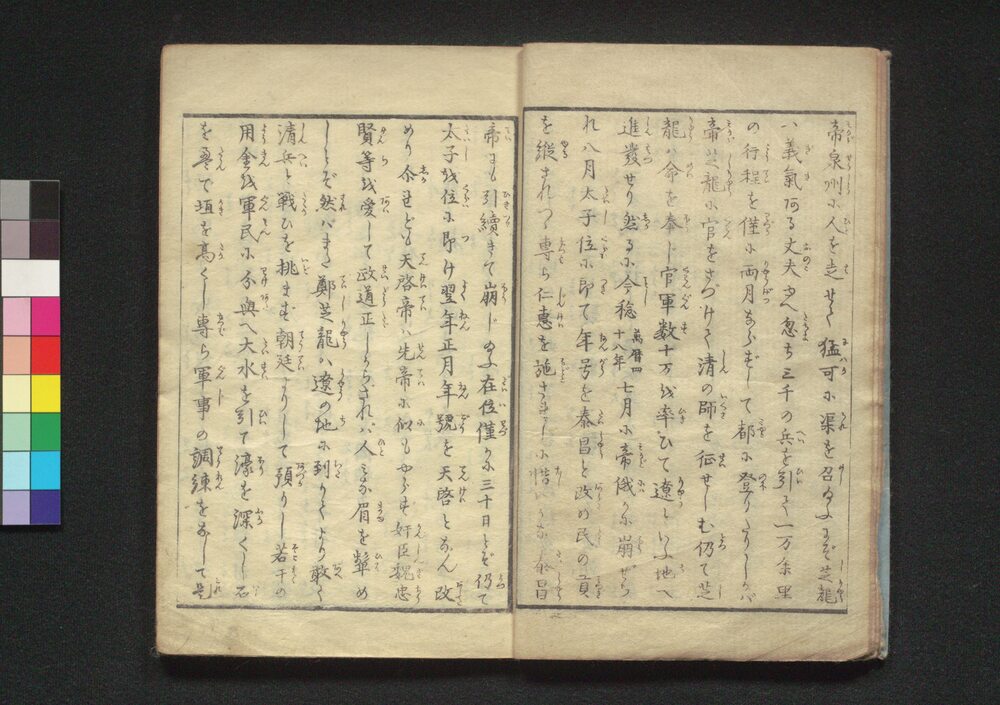 帝泉州に人を走せて猛可に渠を召給ふにぞ芝龍
ハ義氣ある丈夫ゆへ忽ち三千の兵を引て一万余里
の行程を僅に両月ならずして都に登りたりしかバ
帝芝龍に官をさづけて清の師を征せしむ仍て芝
龍ハ命を奉じ官軍数十万を率ひて遼といふ地へ
進發せり然るに今稔萬暦四十八年七月に帝俄かに崩ぜら
れ八月太子位に即て年号を泰昌と改め民の貢
を縦されつ専ら仁恵を施されしに惜いかな泰昌
帝にも引續きて崩じ給ふ在位僅かに三十日とぞ仍て
太子を位に即け翌年正月年號を天啓となん改
めり尓れども天啓帝ハ先帝に似もやらず奸臣魏忠
賢等を愛して政道正しからざれバ人みな眉を顰め
しとぞ然ハまた鄭芝龍ハ遼の地に到りてより敢て
清兵と戦ひを挑まず朝廷よりして預りし若干の
用金を軍民に分與へ大水を引て濠を深くし石
を畳で垣を高くし専ら軍事の調練をなして居